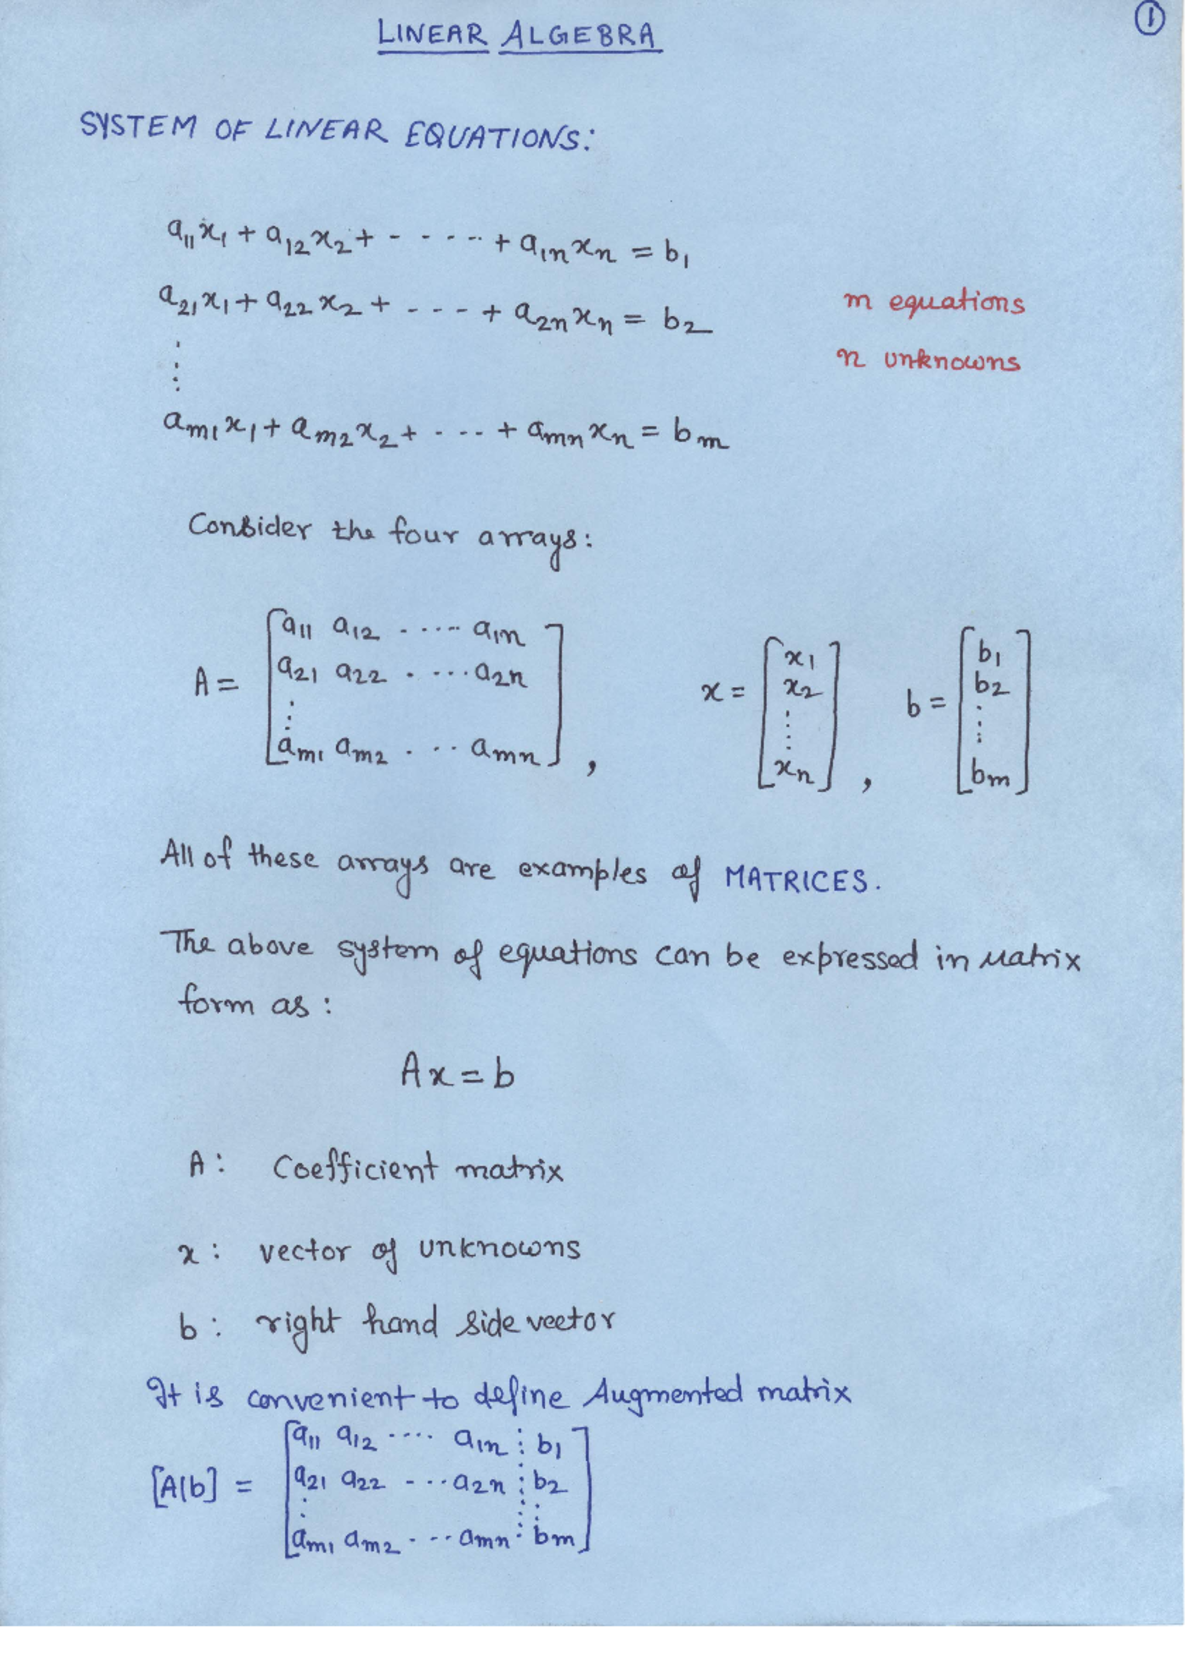 ①
LINEAR ALGEBRA
SYSTEM OF LINEAR EQUATIONS:
a₁₁x₁ + a₁₂x₂ + - - - - - + a₁ₙxₙ = b₁
a₂₁x₁ + a₂₂x₂ + - - - - + a₂ₙxₙ = b₂
m equations
n unknowns
⋮
aₘ₁x₁ + aₘ₂x₂ + - - - - + aₘₙxₙ = bₘ
Consider the four arrays:
A = [a₁₁ a₁₂ ..... a₁ₙ
a₂₁ a₂₂ .... a₂ₙ
⋮
aₘ₁ aₘ₂ ... aₘₙ],
x = [x₁
x₂
⋮
xₙ],
b = [b₁
b₂
⋮
bₘ]
All of these arrays are examples of MATRICES.
The above system of equations can be expressed in Matrix
form as:
Ax = b
A: Coefficient matrix
x: vector of unknowns
b: right hand side vector
It is convenient to define Augmented matrix
[A|b] = [a₁₁ a₁₂ .... a₁ₙ ⋮ b₁
a₂₁ a₂₂ - ... a₂ₙ ⋮ b₂
⋮ ⋮ ⋮
aₘ₁ aₘ₂ . ... aₘₙ ⋮ bₘ]